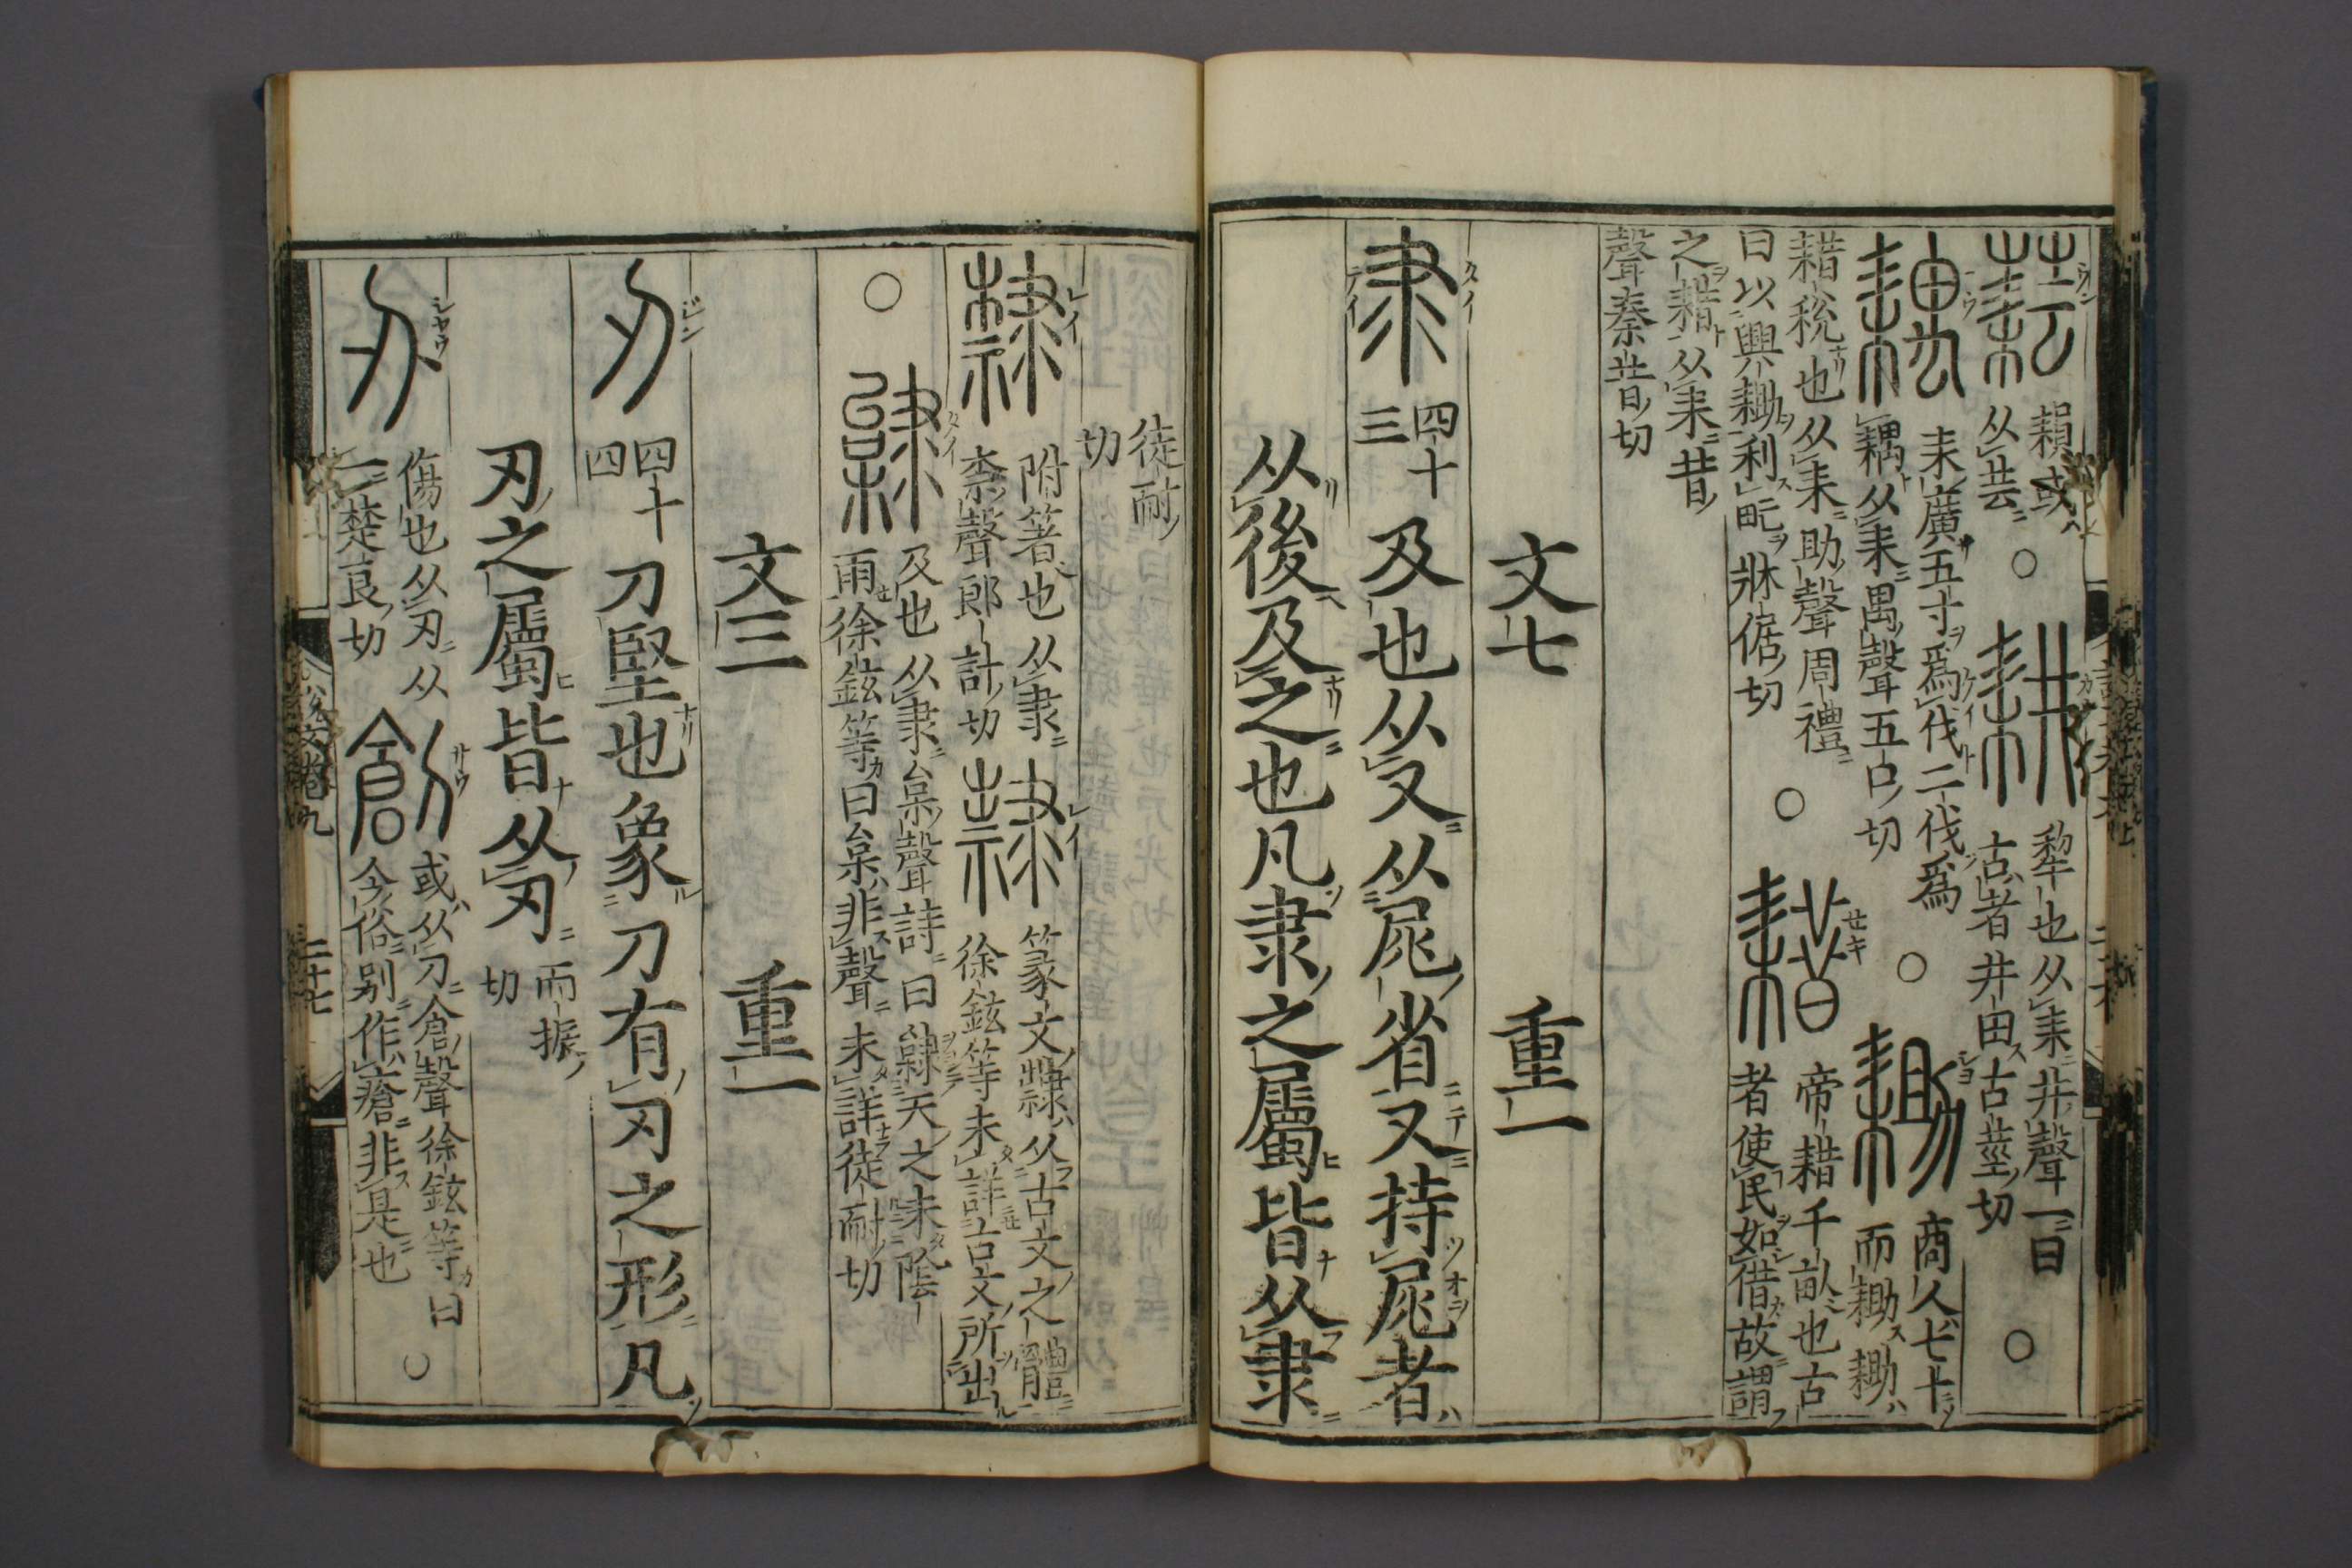 𦔐 頛或
从芸 ○ 𦓥 犂也从耒井聲一曰
古者井田古莖切 ○
耦 耒廣五寸爲伐二伐爲
耦从耒禺聲五口切 ○ 耡 商人七十
而耡耡
耤稅也从耒助聲周禮
曰以興耡利甿牀倨切 ○ 耤 帝耤千畝也古
者使民如借故謂
之耤从耒昔
聲秦昔切
文七 重一
隶 四十三 及也从又从尾省又持尾者
从後及之也凡隶之屬皆从隶
徒耐
切
隸 附箸也从隶
柰聲郎計切 𨽻 篆文隸从古文之體
徐鉉等未詳古文所出
○ 隶枲 及也从隶枲聲詩曰隸天之未陰
雨徐鉉等曰枲非聲未詳徒耐切
文三 重一
刃 四十四 刀堅也象刀有刃之形凡
刃之屬皆从刃 而振
切
刅 傷也从刃从
一楚良切 創 或从刀倉聲徐鉉等曰
今俗別作瘡非是也 ○
說文卷九 二十七